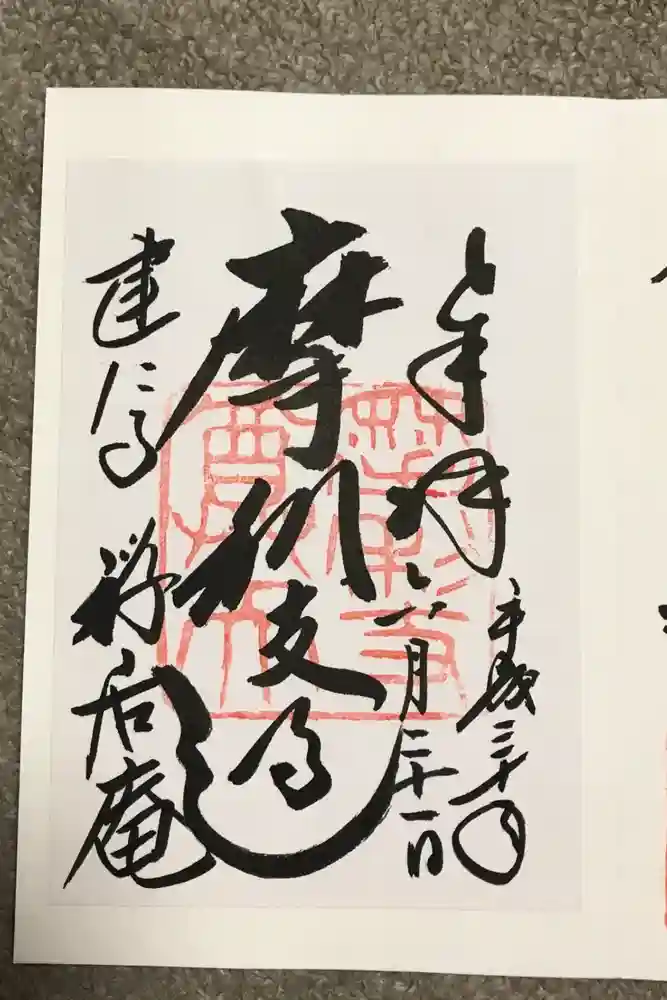 奉拝 平成三十年
六月二十一日
摩利支
建仁寺 禅居庵